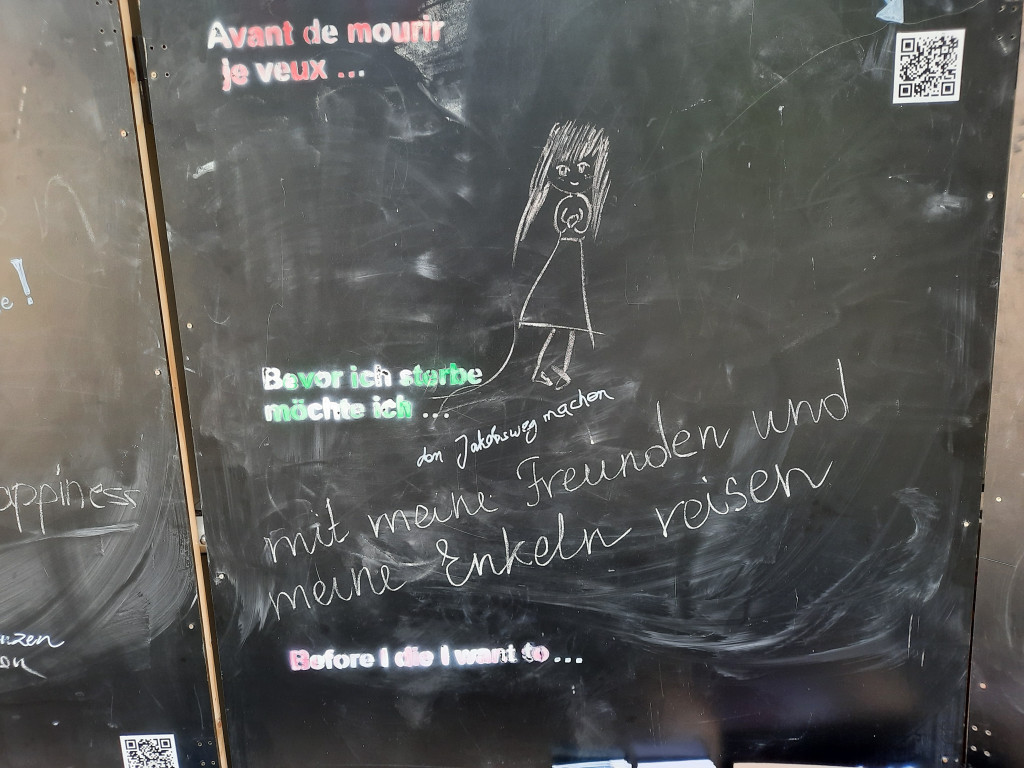 Avant de mourir
je veux ...
e!
Bevor ich sterbe
möchte ich ...
den Jakobsweg machen
mit meine Freunden und
meine Enkeln reisen
appiness
Before I die I want to ...
nzen
on